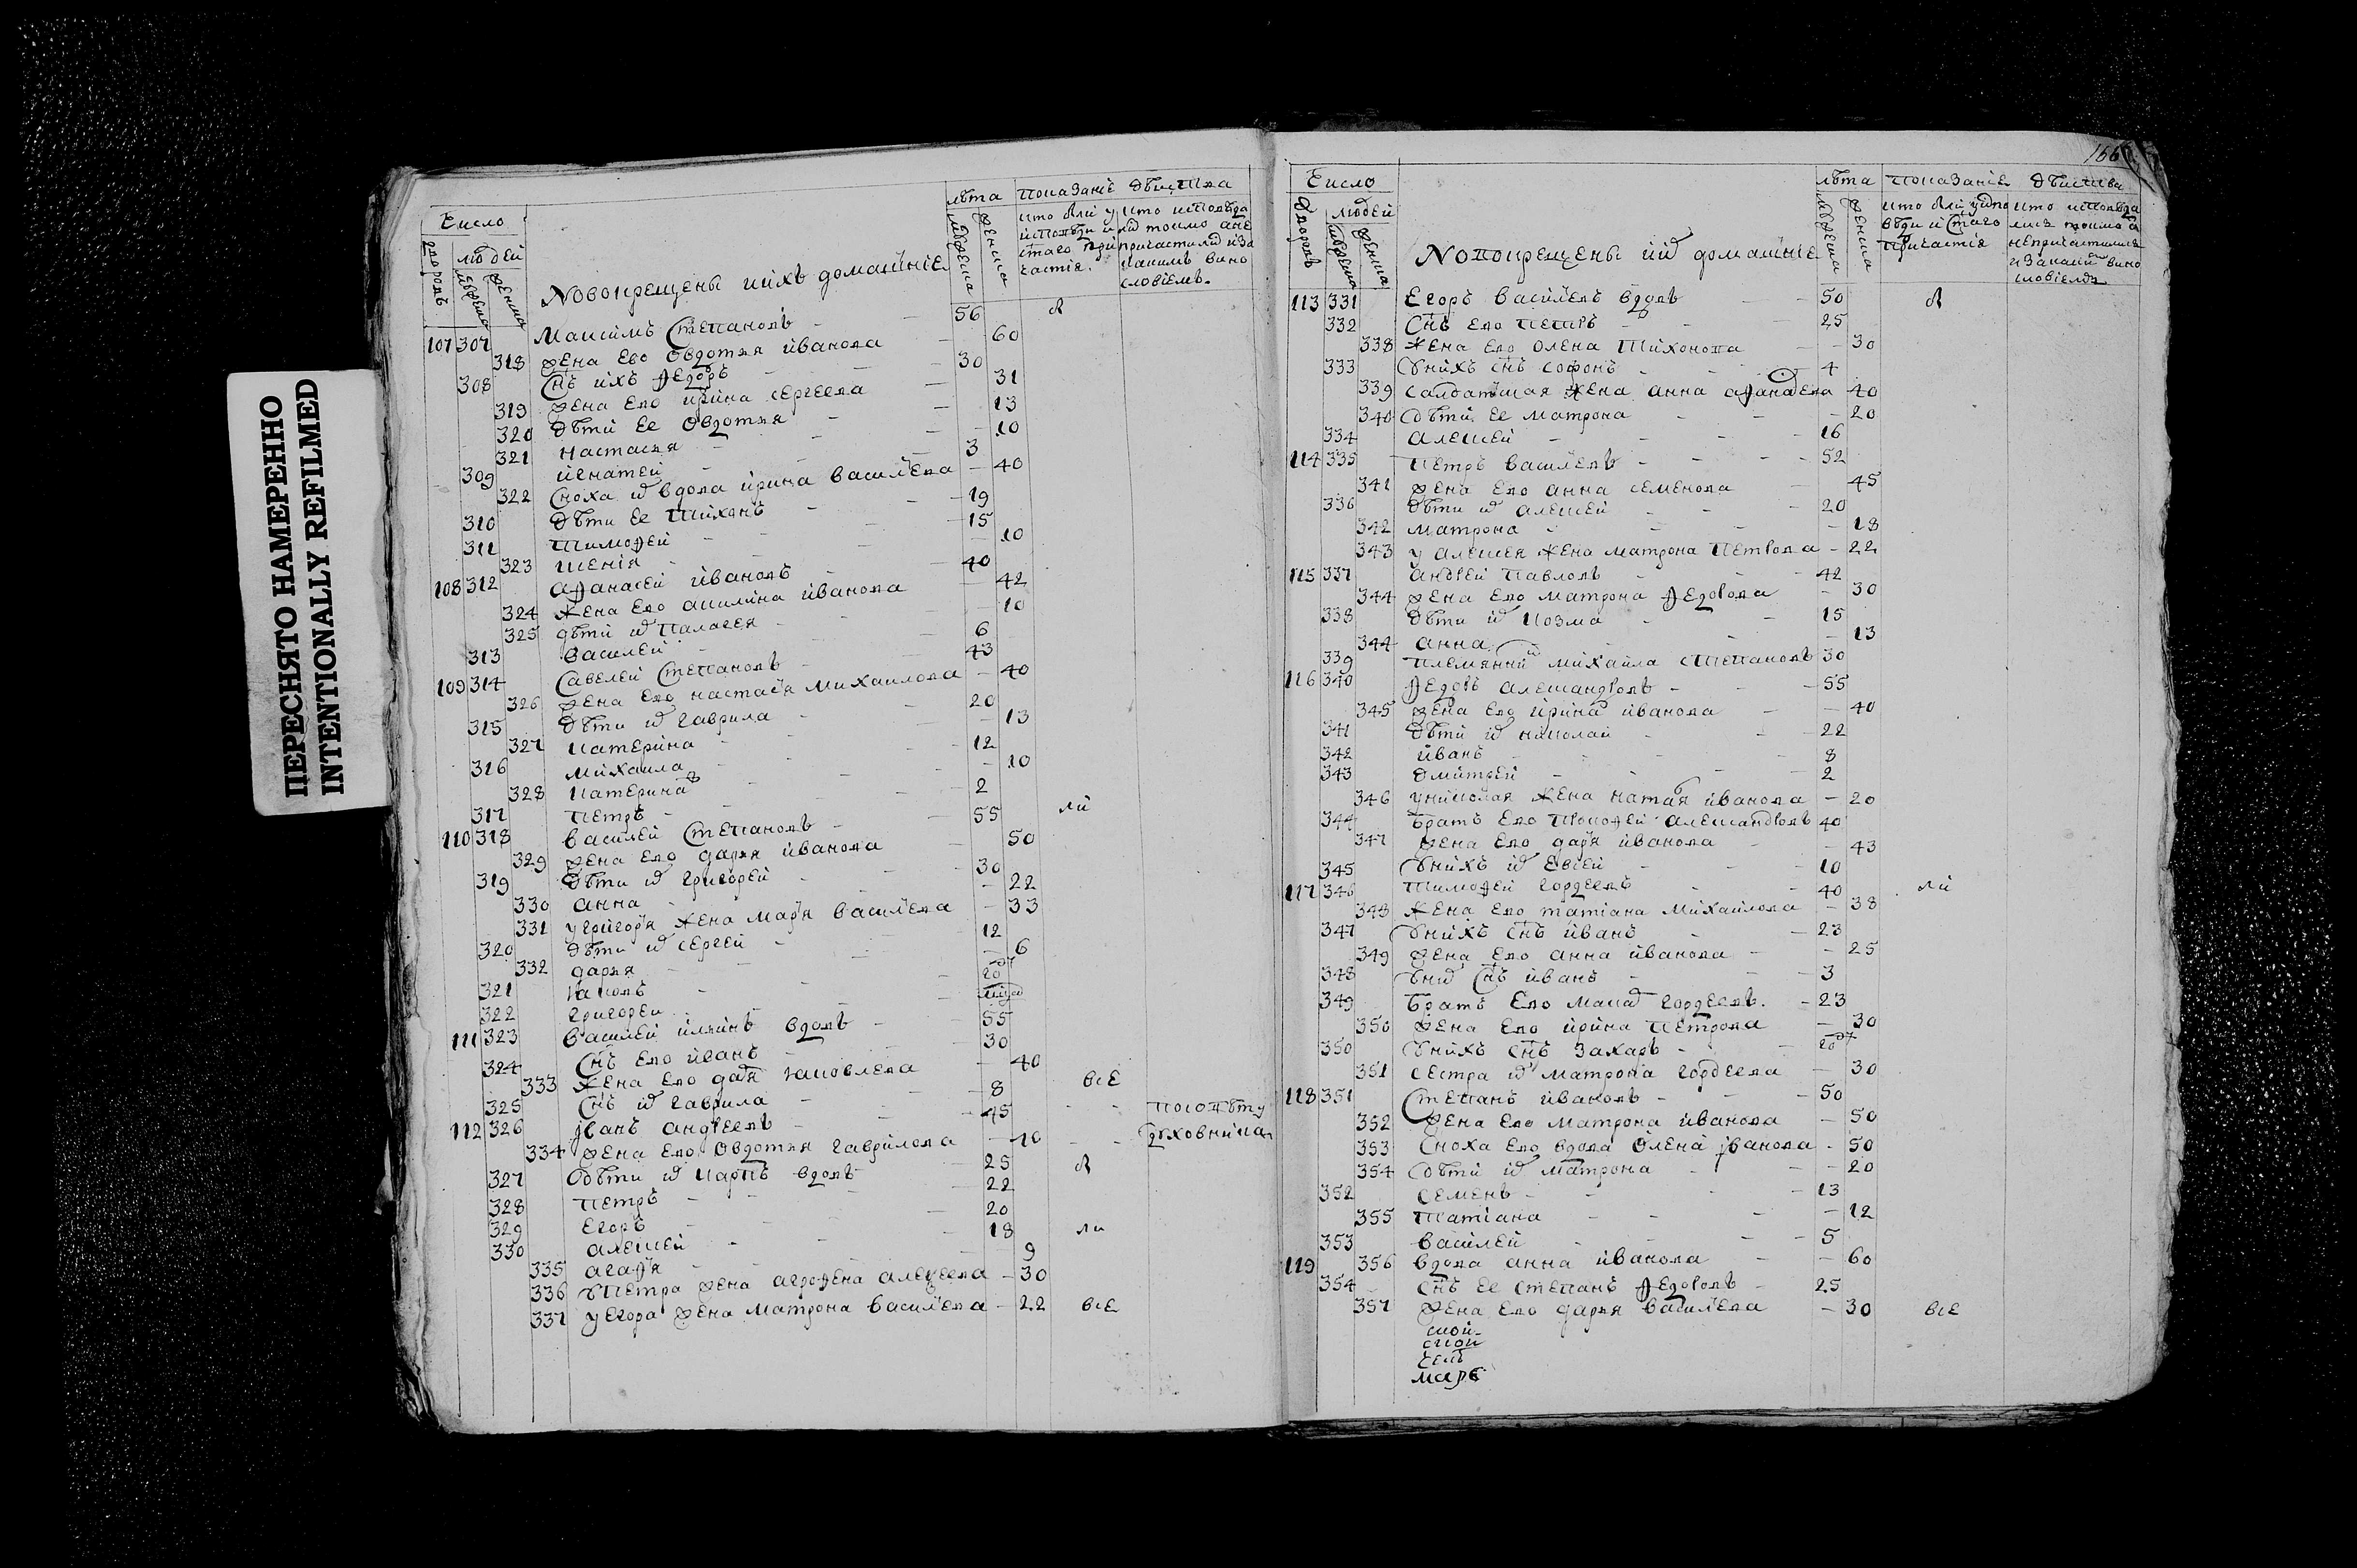 ПЕРЕСНЯТО НАМЕРЕННО
INTENTIONALLY REFILMED
Число
людей
дворовъ
мужеска
женска
Новокрещены ихъ домашніе
лѣта
мужеска
женска
показаніе дѣйства
кто был у исповѣди и стаго причастія
кто исповѣдался токмо а не причастился и за какимъ винословіемъ
107 307 Максимъ Степановъ - 56 был
318 жена ево Овдотья иванова - 60
308 Снъ ихъ Ѳедоръ - 30
319 жена ево ирина сергеева - 31
320 дѣти ее Овдотья - 13
321 настасья - 10
309 игнатей - 3
322 Сноха их вдова ирина василева - 40
310 дѣти ее Тихонъ - 19
311 Тимоѳей - 15
323 ксенія - 10
108 312 аѳанасей ивановъ - 40
324 жена ево акилина иванова - 42
325 дѣти их палагея - 10
313 василей - 6
109 314 Савелей Степановъ - 43
326 жена ево настася михаилова - 40
315 дѣти их гаврила - 20
327 катерина - 13
316 михаила - 12
328 катерина - 10
317 петръ - 2
110 318 василей Степановъ - 55 ли
329 жена ево дарья иванова - 50
319 дѣти их григорей - 30
330 анна - 22
331 у григоря жена маря василева - 33
320 дѣти их сергей - 12
332 дарья - 6
321 яковъ - году
322 григореи
111 323 василей ильинъ вдовъ - 55
324 Снъ ево иванъ - 30
333 жена ево даря яковлева - 40
325 Снъ их гаврила - 8 всѣ
112 326 Иванъ андреевъ - 45 - - посовѣту
334 жена ево Овдотья гаврилова - 40 - - духовника
327 дѣти их карпъ вдовъ - 25 был
328 петръ - 22
329 егоръ - 20
330 алексей - 18 ли
335 агаѳя - 9
336 у петра жена агроѳена алексеева - 30
337 у егора жена матрона василева - 22 всѣ
166
Число
людей
дворовъ
мужеска
женска
Новокрещены их домашніе
лѣта
мужеска
женска
показаніе дѣйства
кто был у исповѣди и стаго причастія
кто исповѣдался токмо а непричастился и за какимъ винословіемъ
113 331 Егоръ василевъ вдовъ - 50 был
332 Снъ ево петръ - 25
338 жена ево олена Тихонова - 30
333 у нихъ снъ соѳонъ - 4
339 салдатская жена анна - 40
340 дѣти ее матрона - 20
334 алексей - 16
114 335 петръ василевъ - 52
341 жена ево анна семенова - 45
336 дѣти их алексей - 20
342 матрона - 18
343 у алексея жена матрона петрова - 22
115 337 андрей павловъ - 42
344 жена ево матрона Ѳедорова - 30
338 дѣти их козма - 15
344 анна - 13
339 племянник михайла степановъ 30
116 340 Ѳедоръ александровъ - 55
345 жена ево ирина иванова - 40
341 дѣти их николай - 22
342 иванъ - 8
343 дмитрей - 2
346 у николая жена натая иванова - 20
344 братъ ево прокоѳей александровъ 40
347 жена ево даря иванова - 43
345 у нихъ Евсей - 10
117 346 Тимоѳей гордеевъ - 40 ли
348 жена ево татіана михаилова - 38
347 у нихъ снъ иванъ - 23
349 жена ево анна иванова - 25
348 у них снъ иванъ - 3
349 братъ ево гордеевъ - 23
350 жена ево ирина петрова - 30
350 у нихъ снъ захаръ - году
351 сестра их матрона гордеева - 30
118 351 Степанъ ивановъ - 50
352 жена ево матрона иванова - 50
353 сноха ево вдова Олена Иванова - 50
354 дѣти их матрона - 20
352 семенъ - 13
355 Татіана - 12
353 василей - 5
119 356 вдова анна иванова - 60
354 снъ ее степанъ Ѳедоровъ - 25
357 жена ево дарья василева - 30 всѣ